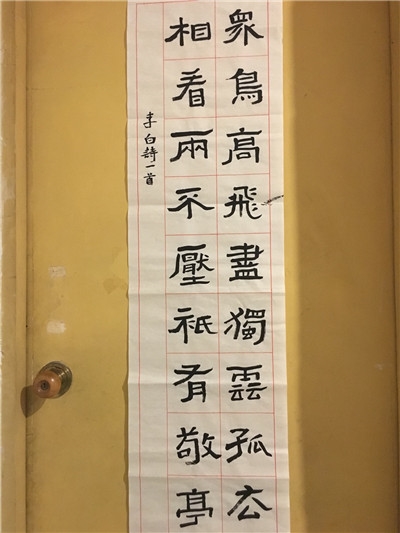 眾鳥高飛盡獨雲孤去
相看兩不壓祇有敬亭
李白詩一首